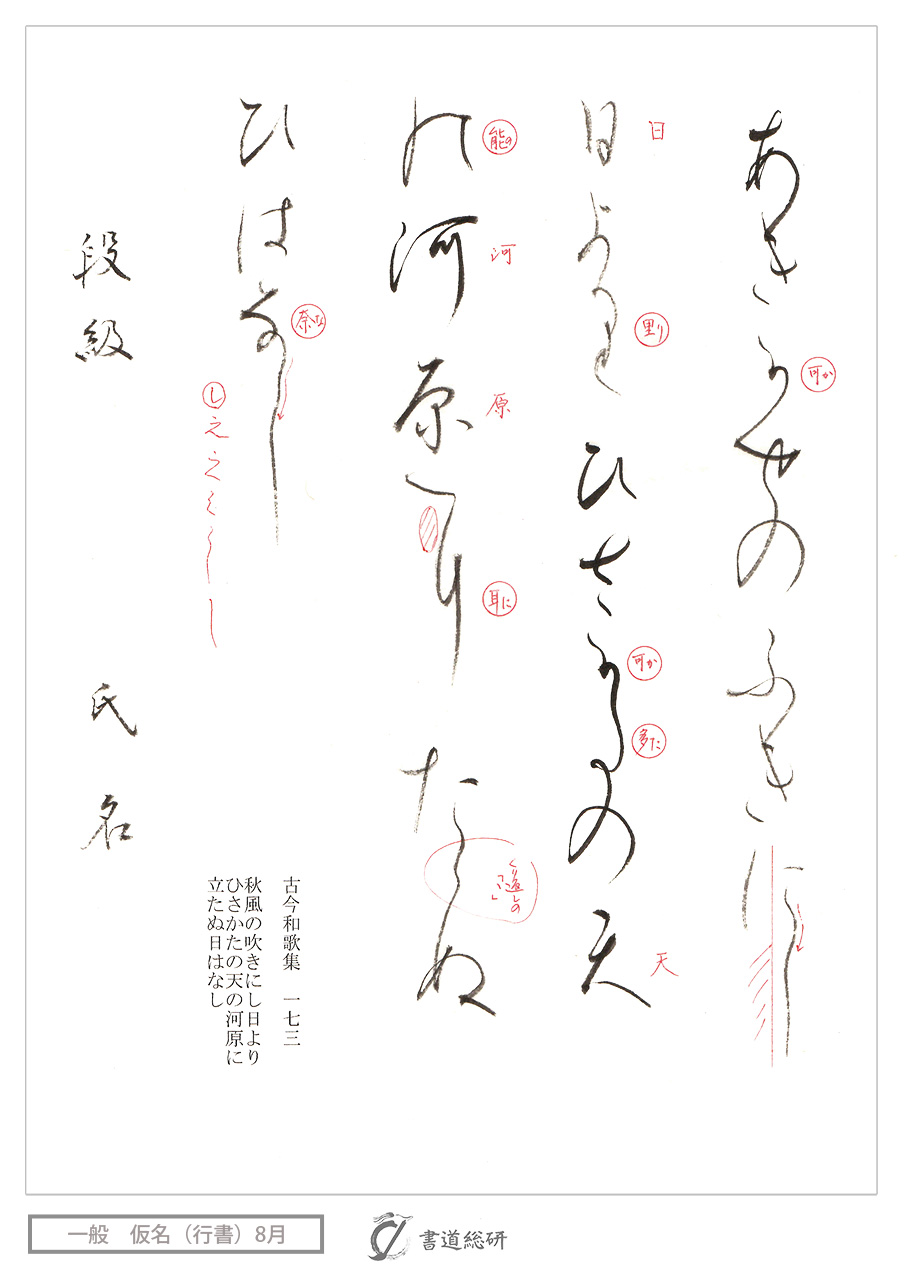 あき可せのふきにし
可か
日よ里ひさ可多の天
日
里り
可か
多た
天
能河原耳たゝぬ
能の
河
原
耳に
ひは奈し
奈な
し
段級 氏名
古今和歌集 一七三
秋風の吹きにし日より
ひさかたの天の河原に
立たぬ日はなし
一般 仮名（行書）8月
書道総研